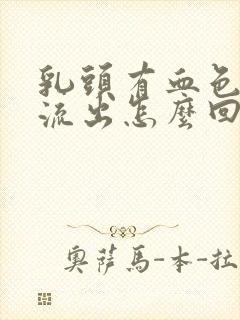 乳頭有血色
流出怎麼回
奧薩馬-本-拉